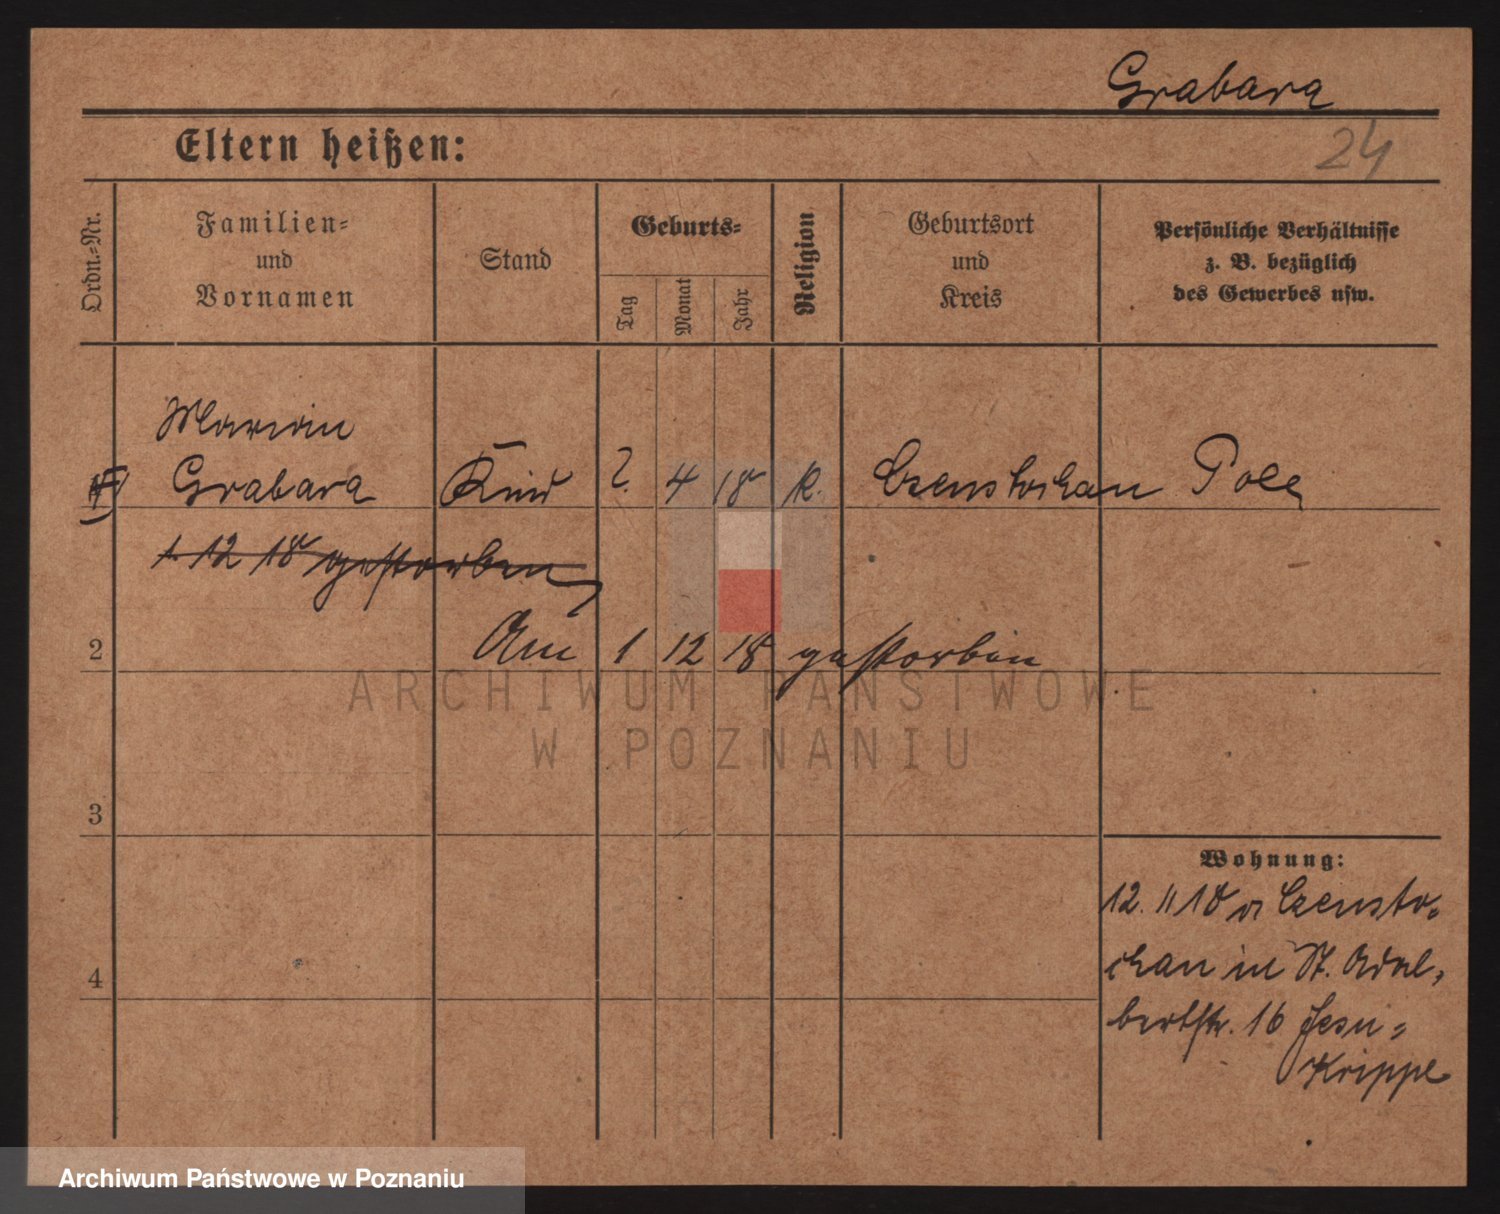 Grabara
24
Eltern heißen:
Ordn.-Nr.
Familien-
und
Vornamen
Stand
Geburts-
Tag
Monat
Jahr
Religion
Geburtsort
und
Kreis
Persönliche Verhältnisse
z. B. bezüglich
des Gewerbes usw.
Marian
Grabara Kind ?. 4 18 k. Czenstochau Pole
1. 12 18 gestorben
2 Am 1 12 18 gestorben
ARCHIWUM PAŃSTWOWE
W POZNANIU
3
Wohnung:
12. 11 18 v Czensto-
chau in St. Adal-
4
bertstr. 16 Jesu-
Krippe
Archiwum Państwowe w Poznaniu